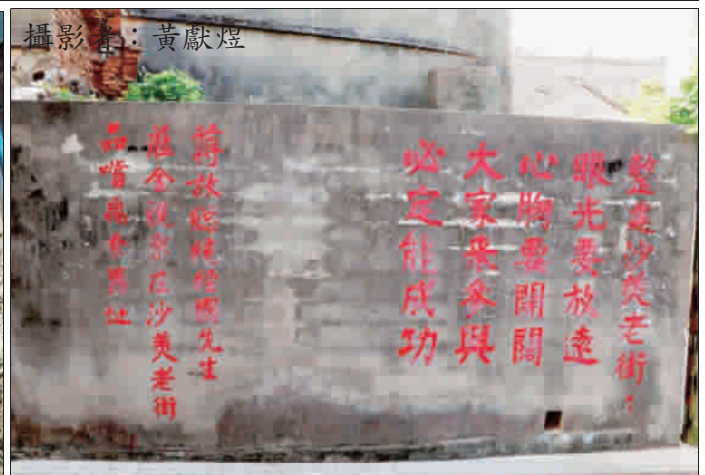 攝影者：黃獻煜
整建沙美老街：
眼光要放遠
心胸要開闊
大家來參與
必定能成功
蔣故總統經國先生
蒞金視察在沙美老街
品嚐
舊址